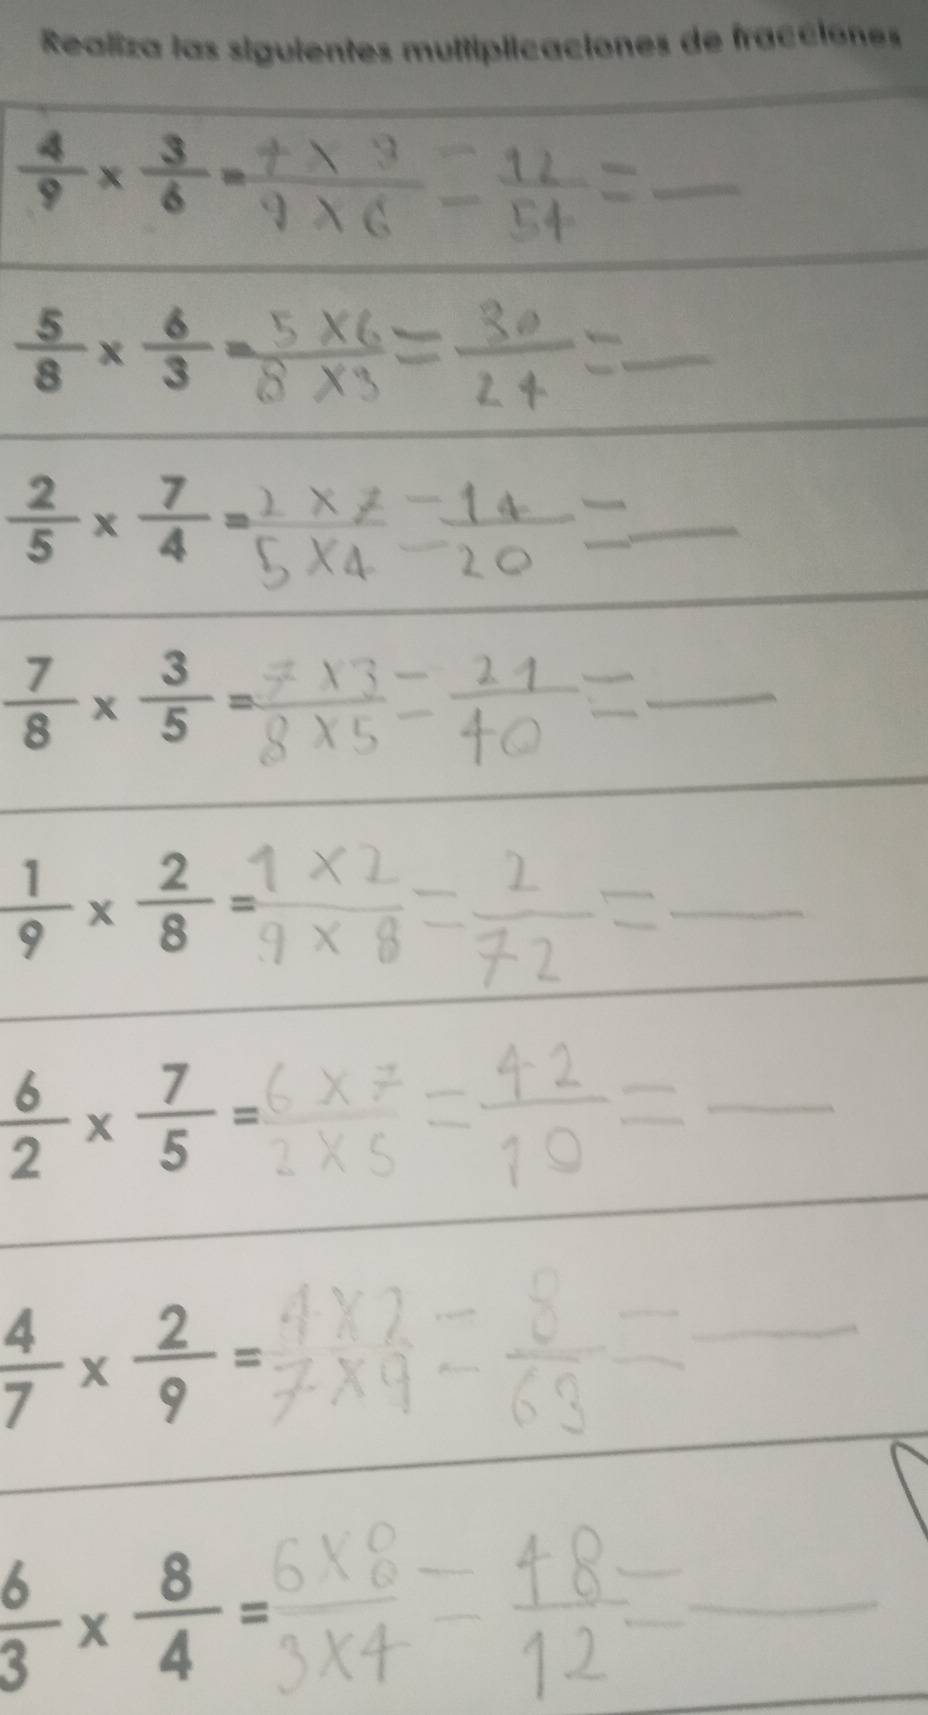 Realiza las siguientes multiplicaciones de fracciones
4/9 x 3/6 = 4 x 3 / 9 x 6 = 12/54 = —
5/8 x 6/3 = 5 x 6 / 8 x 3 = 30/24 = —
2/5 x 7/4 = 2 x 7 / 5 x 4 = 14/20 = —
7/8 x 3/5 = 7 x 3 / 8 x 5 = 21/40 = —
1/9 x 2/8 = 1 x 2 / 9 x 8 = 2/72 = —
6/2 x 7/5 = 6 x 7 / 2 x 5 = 42/10 = —
4/7 x 2/9 = 4 x 2 / 7 x 9 = 8/63 = —
6/3 x 8/4 = 6 x 8 / 3 x 4 = 48/12 = —